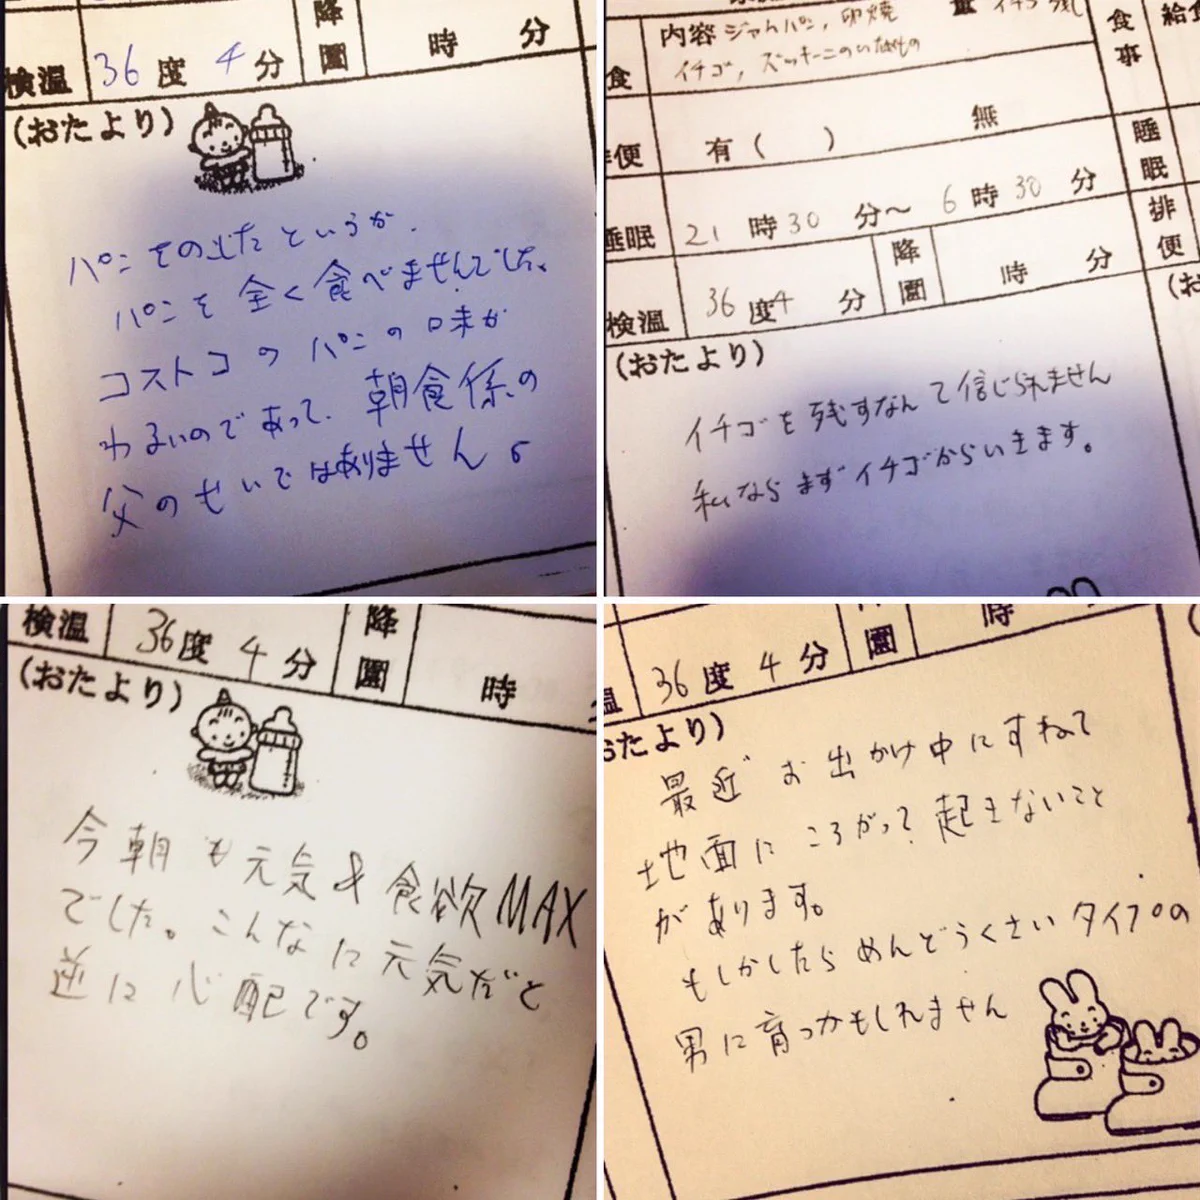 検温 36 度 4 分 降園 時 分
(おたより)
パンをの上だというか、
パンを全く食べませんでした。
コストコのパンの味が
わるいのであって、朝食係の
父のせいではありません。
食 内容 ジャムパン,卵焼 量 イチゴ残し
イチゴ,ズッキーニのいためもの
食事 給食
便 有( ) 無
睡眠 21 時 30 分〜 6 時 30 分
睡眠
排便
検温 36 度 4 分 降園 時 分
(おたより)
イチゴを残すなんて信じられません
私ならまずイチゴからいきます。
検温 36 度 4 分 降園 時
(おたより)
今朝も元気&食欲MAX
でした。こんなに元気だと
逆に心配です。
温 36 度 4 分 園 時
おたより)
最近お出かけ中にすねて
地面にころがって起きないこと
があります。
もしかしたらめんどうくさいタイプの
男に育つかもしれません